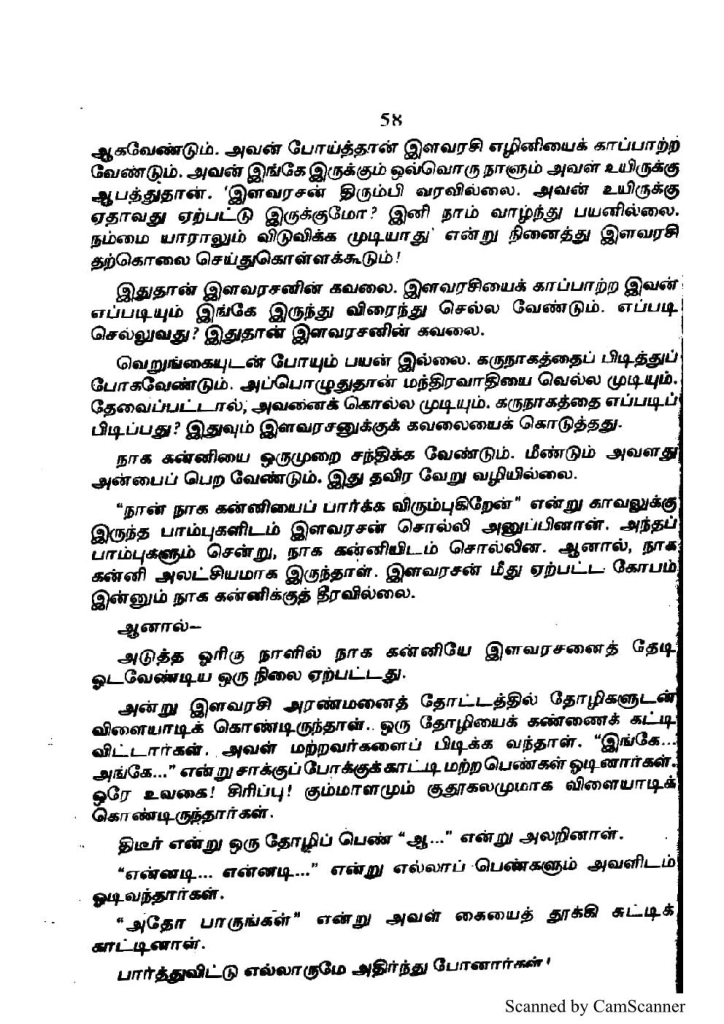 58
ஆகவேண்டும். அவன் போய்த்தான் இளவரசி எழினியைக் காப்பாற்ற
வேண்டும். அவன் இங்கே இருக்கும் ஒவ்வொரு நாளும் அவள் உயிருக்கு
ஆபத்துதான். 'இளவரசன் திரும்பி வரவில்லை. அவன் உயிருக்கு
ஏதாவது ஏற்பட்டு இருக்குமோ? இனி நாம் வாழ்ந்து பயனில்லை.
நம்மை யாராலும் விடுவிக்க முடியாது' என்று நினைத்து இளவரசி
தற்கொலை செய்துகொள்ளக்கூடும்!
இதுதான் இளவரசனின் கவலை. இளவரசியைக் காப்பாற்ற இவன்
எப்படியும் இங்கே இருந்து விரைந்து செல்ல வேண்டும். எப்படி
செல்லுவது? இதுதான் இளவரசனின் கவலை.
வெறுங்கையுடன் போயும் பயன் இல்லை. கருநாகத்தைப் பிடித்துப்
போகவேண்டும். அப்பொழுதுதான் மந்திரவாதியை வெல்ல முடியும்.
தேவைப்பட்டால், அவனைக் கொல்ல முடியும். கருநாகத்தை எப்படிப்
பிடிப்பது? இதுவும் இளவரசனுக்குக் கவலையைக் கொடுத்தது.
நாக கன்னியை ஒருமுறை சந்திக்க வேண்டும். மீண்டும் அவளது
அன்பைப் பெற வேண்டும். இது தவிர வேறு வழியில்லை.
"நான் நாக கன்னியைப் பார்க்க விரும்புகிறேன்" என்று காவலுக்கு
இருந்த பாம்புகளிடம் இளவரசன் சொல்லி அனுப்பினான். அந்தப்
பாம்புகளும் சென்று, நாக கன்னியிடம் சொல்லின. ஆனால், நாக
கன்னி அலட்சியமாக இருந்தாள். இளவரசன் மீது ஏற்பட்ட கோபம்
இன்னும் நாக கன்னிக்குத் தீரவில்லை.
ஆனால்—
அடுத்த ஓரிரு நாளில் நாக கன்னியே இளவரசனைத் தேடி
ஓடவேண்டிய ஒரு நிலை ஏற்பட்டது.
அன்று இளவரசி அரண்மனைத் தோட்டத்தில் தோழிகளுடன்
விளையாடிக் கொண்டிருந்தாள். ஒரு தோழியைக் கண்ணைக் கட்டி
விட்டார்கள். அவள் மற்றவர்களைப் பிடிக்க வந்தாள். "இங்கே...
அங்கே..." என்று சாக்குப்போக்குக்காட்டி மற்ற பெண்கள் ஓடினார்கள்.
ஒரே உவகை! சிரிப்பு! கும்மாளமும் குதூகலமுமாக விளையாடிக்
கொண்டிருந்தார்கள்.
திடீர் என்று ஒரு தோழிப் பெண் "ஆ..." என்று அலறினாள்.
"என்னடி... என்னடி..." என்று எல்லாப் பெண்களும் அவளிடம்
ஓடிவந்தார்கள்.
"அதோ பாருங்கள்" என்று அவள் கையைத் தூக்கி சுட்டிக்
காட்டினாள்.
பார்த்துவிட்டு எல்லாருமே அதிர்ந்து போனார்கள்!
Scanned by CamScanner